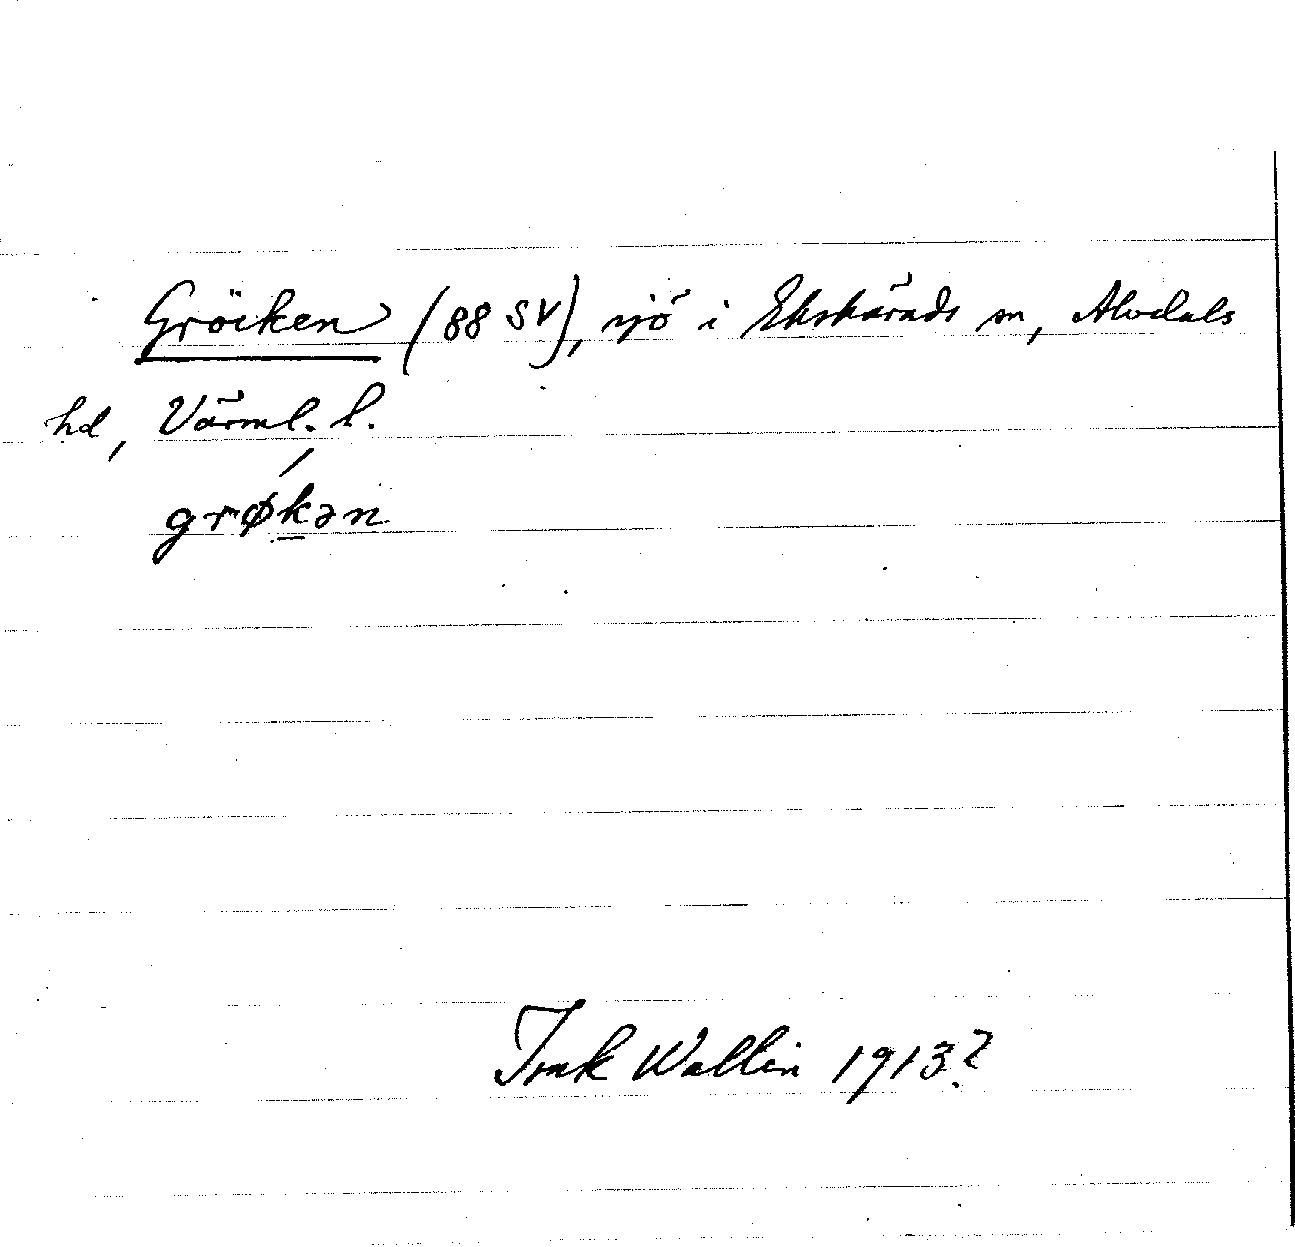 Gröcken (88 SV), sjö i Ekshärads sn, Älvdals
hd, Värml. l.
grøkən
Wallin 1913?